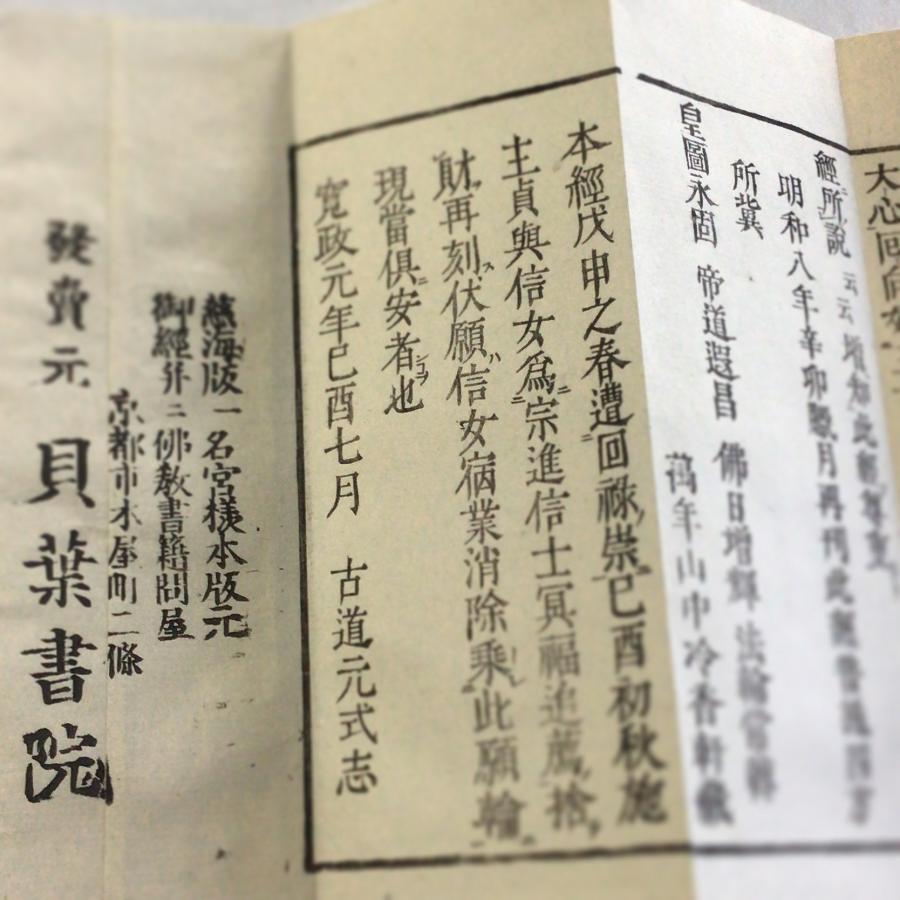 大心回向
經所說 云云 増加此經尊重
明和八年辛卯臘月再刊此經普施四方
所冀
皇圖永固 帝道遐昌 佛日增輝 法輪常轉
萬年山中冷香軒
本經戊申之春遭回祿崇已酉初秋施
主貞與信女爲宗進信士冥福追薦捨
財再刻伏願信女宿業消除乘此願輪
現當俱安者也
寛政元年已酉七月 古道元式志
慈海版一名宮様本版元
御經并ニ佛教書籍問屋
京都市木屋町二條
發賣元 貝葉書院